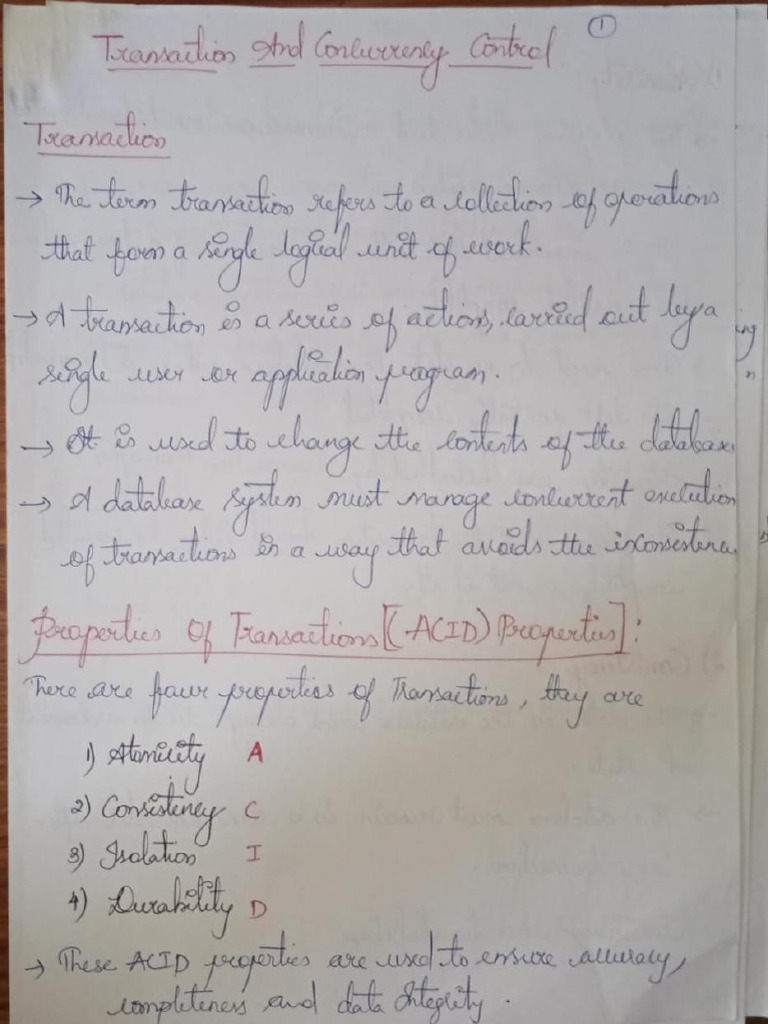 1
Transaction And Concurrency Control
Transaction
→ The term transaction refers to a collection of operations
that form a single logical unit of work.
→ A transaction is a series of actions, carried out by a
single user or application program.
→ It is used to change the contents of the database
→ A database system must manage concurrent execution
of transactions in a way that avoids the inconsistenc
Properties Of Transactions [(ACID) Properties]:
There are four properties of Transactions, they are
1) Atomicity A
2) Consistency C
3) Isolation I
4) Durability D
→ These ACID properties are used to ensure accuracy,
completeness and data Integrity.